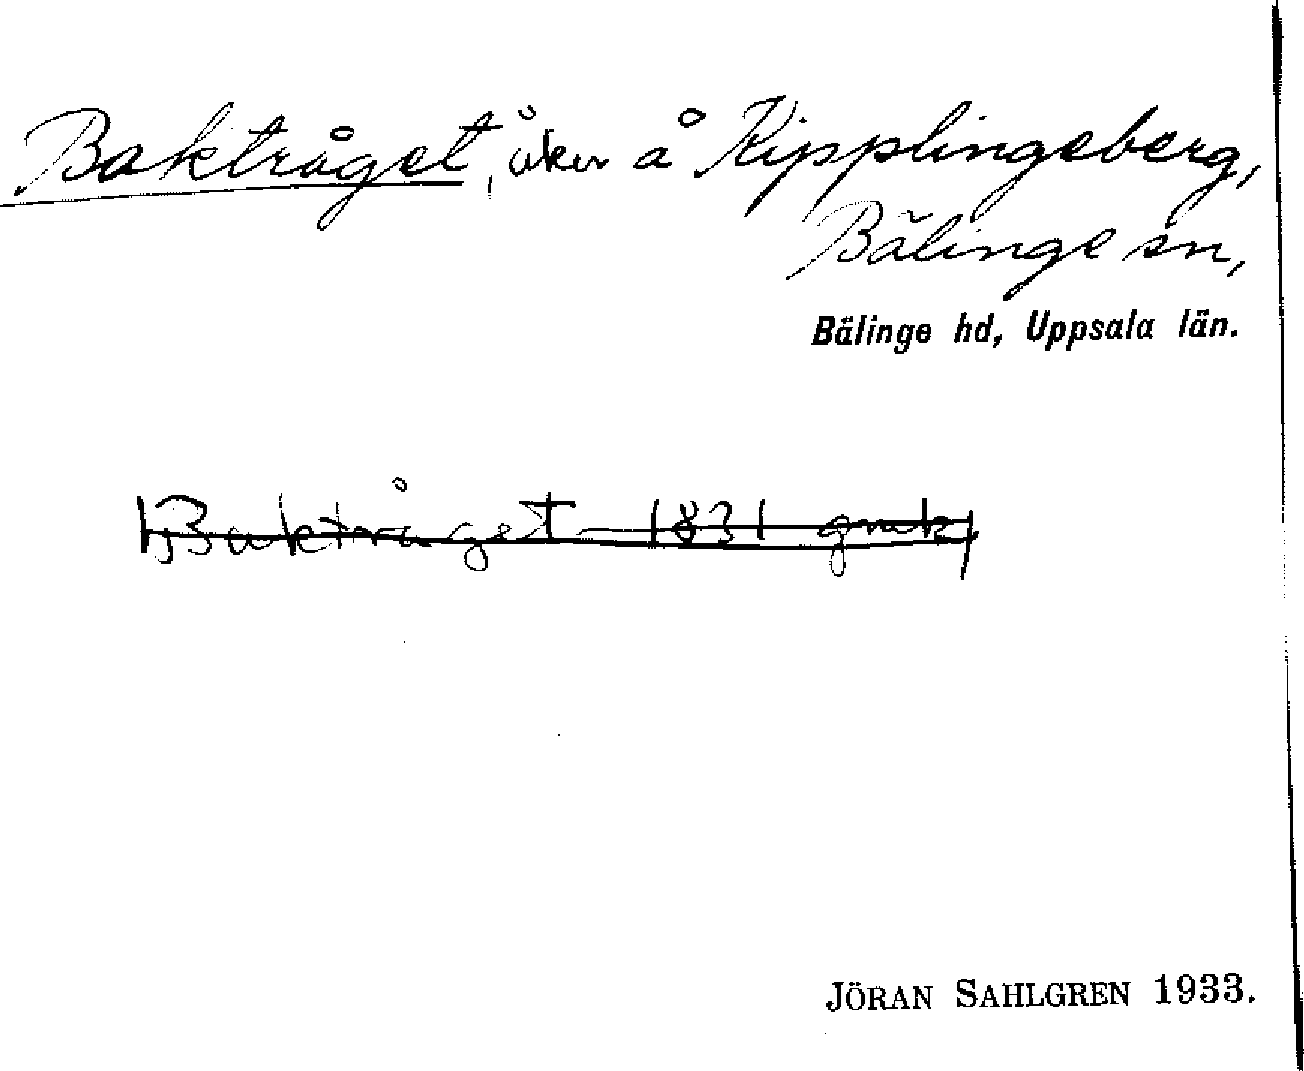 Baktråget, åker å Kipplingeberg,
Bälinge sn,
Bälinge hd, Uppsala län.
Baktråget 1831 gmk
JÖRAN SAHLGREN 1933.